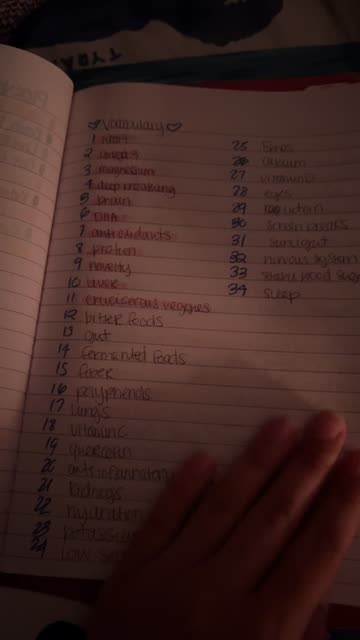 TYRA
♡Vocabulary♡
1
2 omega 3
3 magnesium
4 deep breathing
5 brain
6 DHA
7 antioxidants
8 protein
9 novelty
10 liver
11 cruciferous veggies
12 bitter foods
13 gut
14 fermented foods
15 fiber
16 polyphenols
17 lungs
18 vitamin C
19 quercetin
20 anti inflammatory
21 kidneys
22 hydration
23 potassium
24 low so
25 bones
26 calcium
27 vitamin D
28 eyes
29 lutein
30 screen breaks
31 sunlight
32 nervous system
33 stable blood sug
34 sleep